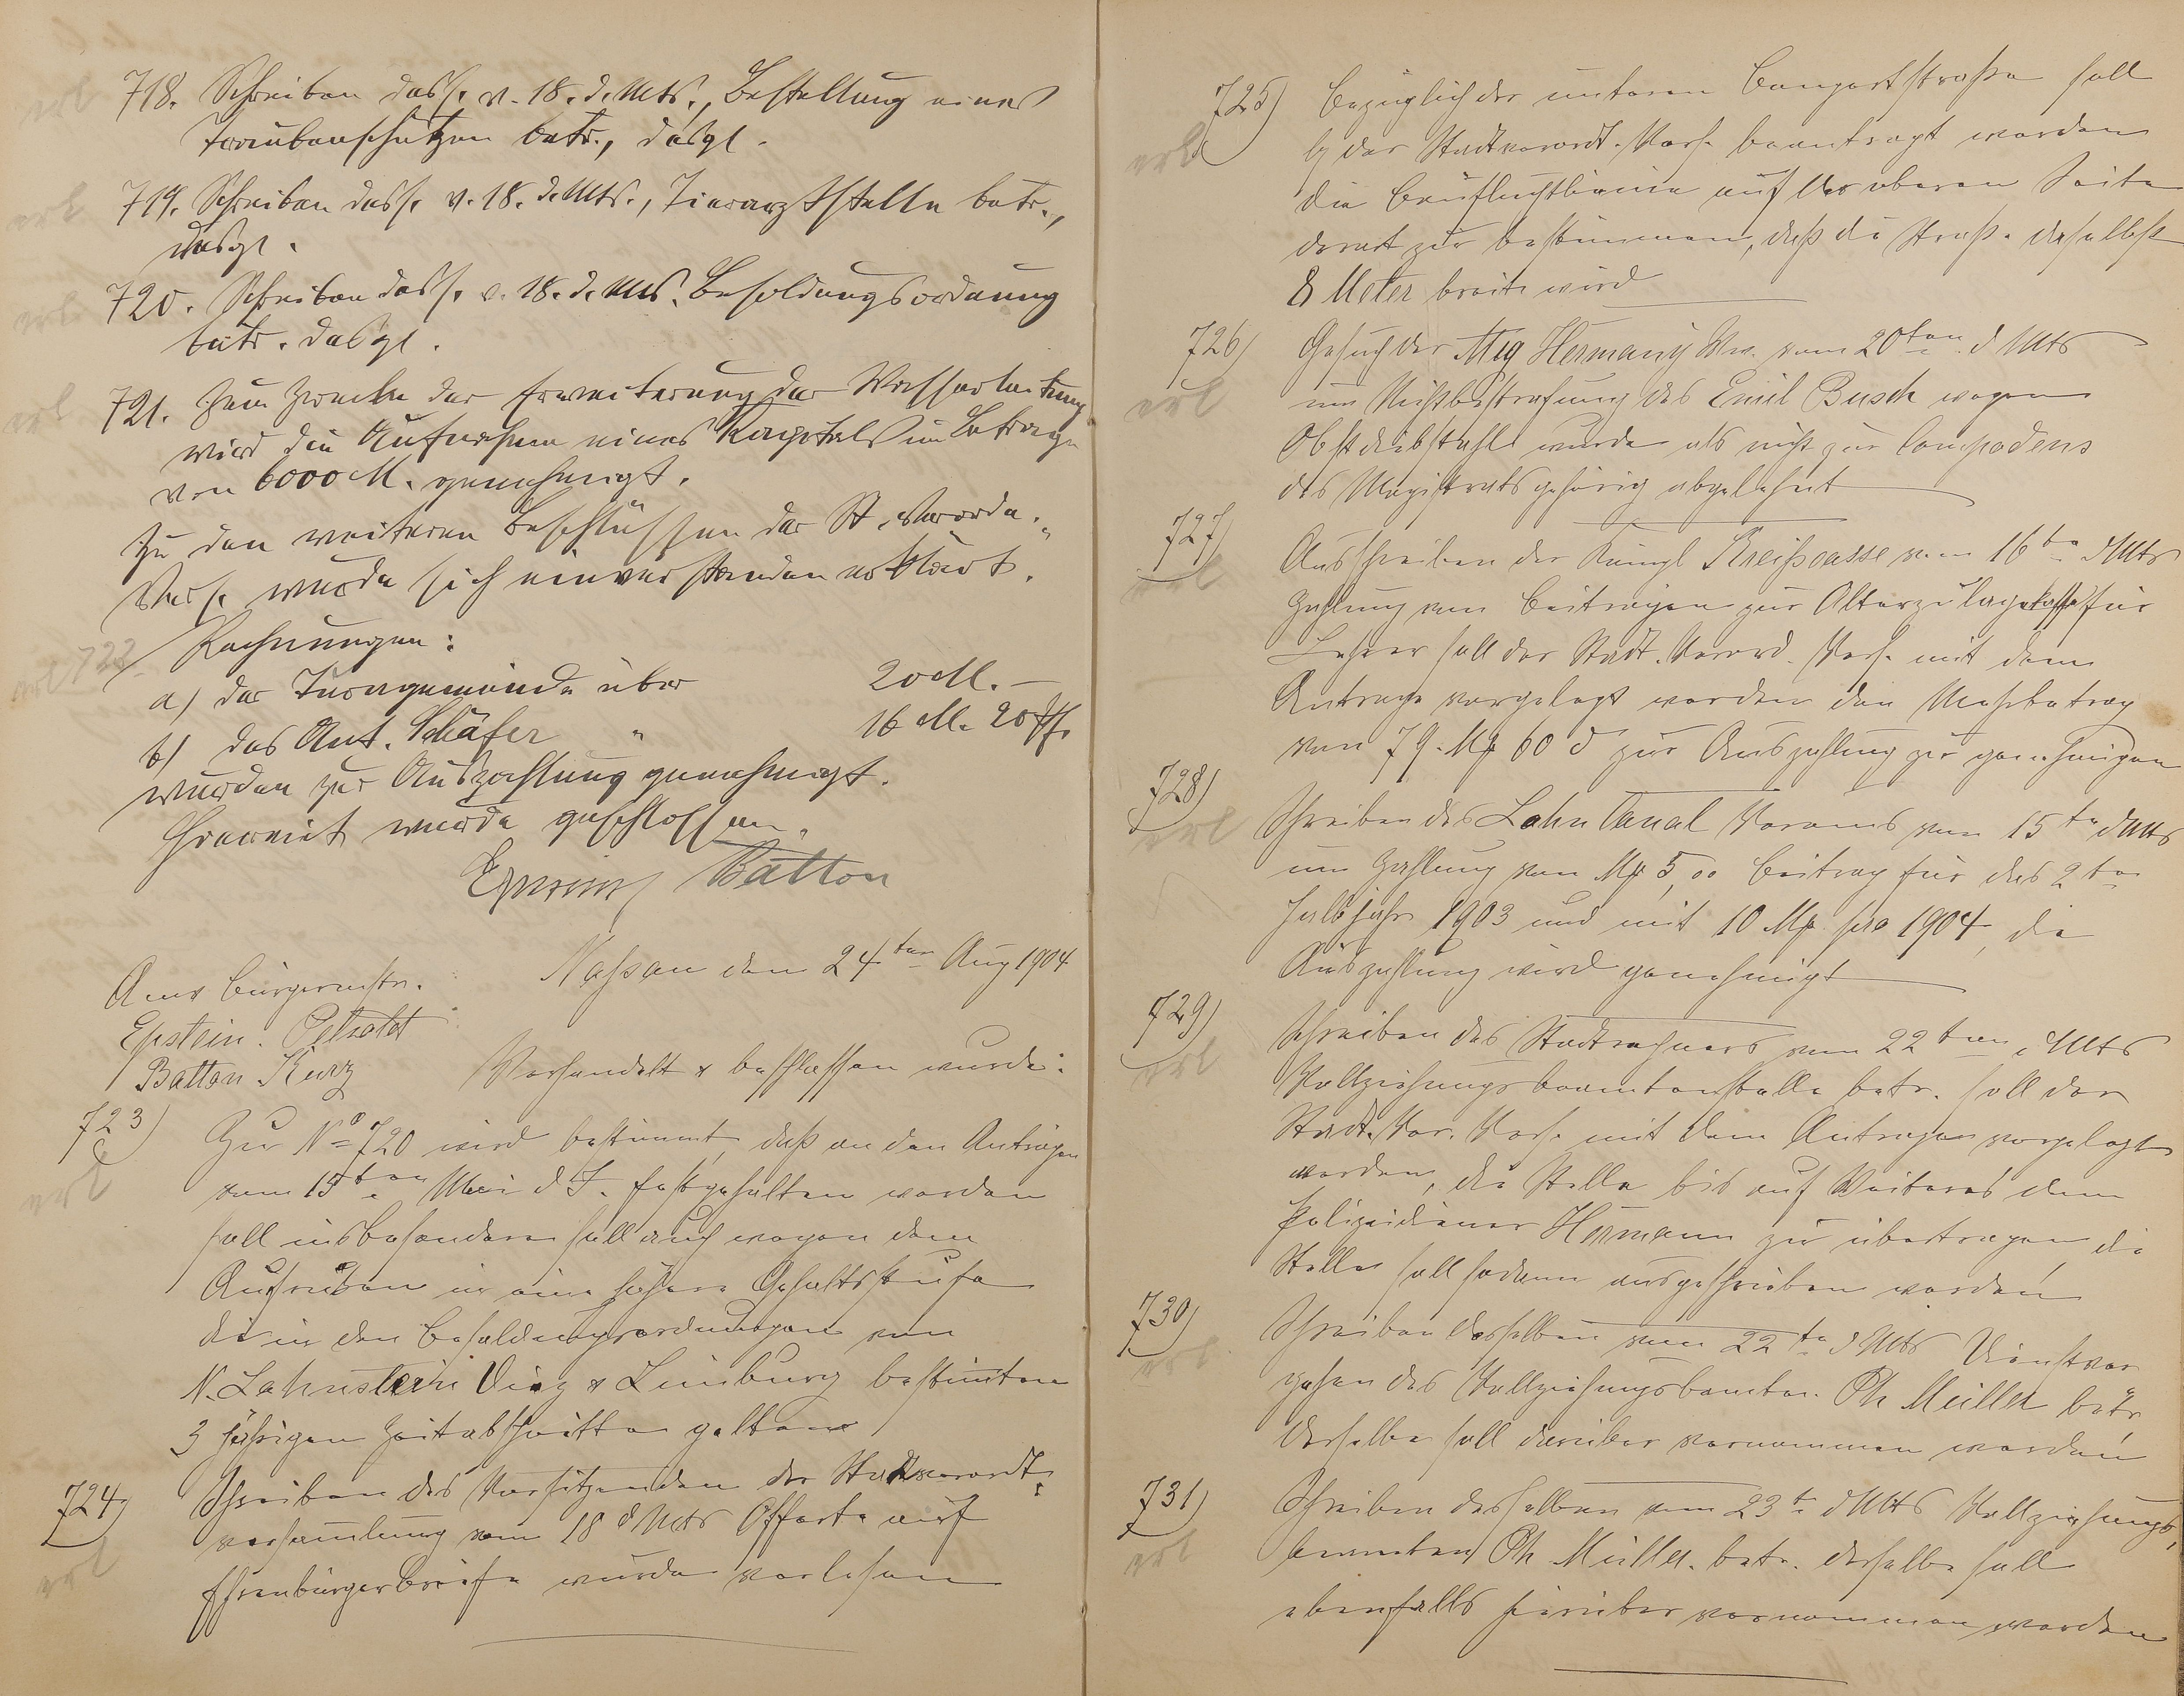 718. Schreiben dess. v. 18. d. Mts., Bestellung eines
Traubenschützen betr., desgl.
719. Schreiben dess. v. 18. d. Mts., Tierarztstelle betr.,
desgl.
720. Schreiben dess. v. 18. d. Mts. Besoldungsordnung
betr. desgl.
721. Zum Zwecke der Erweiterung der Wasserleitung
wird die Aufnahme eines Kapitals im Betrage
von 6000 M. genehmigt.
Zu den weiteren Beschlüssen der St. Verordn.
Vers. wurde sich einverstanden erklärt.
722 Rechnungen:
a) der Turngemeinde über 20 M. —
b) des Ant. Schäfer " 16 M. 20 Pf.
wurden zur Auszahlung genehmigt.
Hiermit wurde geschlossen.
Epstein Batton
Nassau den 24ten Aug 1904
Anw Bürgermstr.
Epstein. Petzoldt
Batton Kurz
Verhandelt & beschlossen wurde:
723) Zur No 720 wird bestimmt, daß an den Anträgen
vom 15ten Mai d J. festgehalten werden
soll insbesondere soll auch wegen dem
Aufrücken in eine höhere Gehaltsstufe
die in den Besoldungsordnungen von
N. Lahnstein Diez & Limburg bestimten
3 jährigen Zeitabschnitte gelten
724) Schreiben des Vorsitzenden der Stadtverordt.
versamlung vom 18 d Mts Offerte auf
Ehrenbürgerbriefe wurde verlesen
725) Bezüglich der unteren Bongertstraße soll
by der Stadtverordt. Vers. beantragt werden
die Baufluchtlinie auf der oberen Seite
derart zu bestimmen, daß die Straße daselbst
8 Meter breit wird
726) Gesuch der MEg Hermany Ww. vom 20ten d Mts
um Nichtbestrafung des Emil Busch wegen
Obstdiebstahls wurde als nicht zur Compodens
des Magistrats gehörig abgelehnt
727) Ausschreiben der Königl Kreißcasse vom 16ten d Mts
Zahlung von Beiträgen zur Alterzulagekasse für
Lehrer soll der Stadt. Verord. Vers. mit dem
Antrage vorgelegt werden den Mehrbetrag
von 79. Mk 60 d zur Auszahlung zu genehmigen
728) Schreiben des Lahn Canal Vereins vom 15ten d Mts
um Zahlung von Mk 5,00 Beitrag für das 2te
Halbjahr 1903 und mit 10 Mk pro 1904, die
Auszahlung wird genehmigt
729) Schreiben des Stadtrechners vom 22ten d Mts
Vollziehungsbeamtenstelle betr. soll der
Stadt. Ver. Vers. mit dem Antrage vorgelegt
werden, die Stelle bis auf Weiteres dem
Polizeidiener Hermann zu übertragen, die
Stelle soll sodann ausgeschrieben werden
730) Schreiben desselben vom 22te d Mts Dienstver
gehen des Vollziehungsbeamten. Ph Müller betr.
derselbe soll darüber vernommen werden
731) Schreiben desselben vom 23te d Mts Vollziehungs
beamten Ph Müller. betr. derselbe soll
ebenfalls hierüber vernommen werden